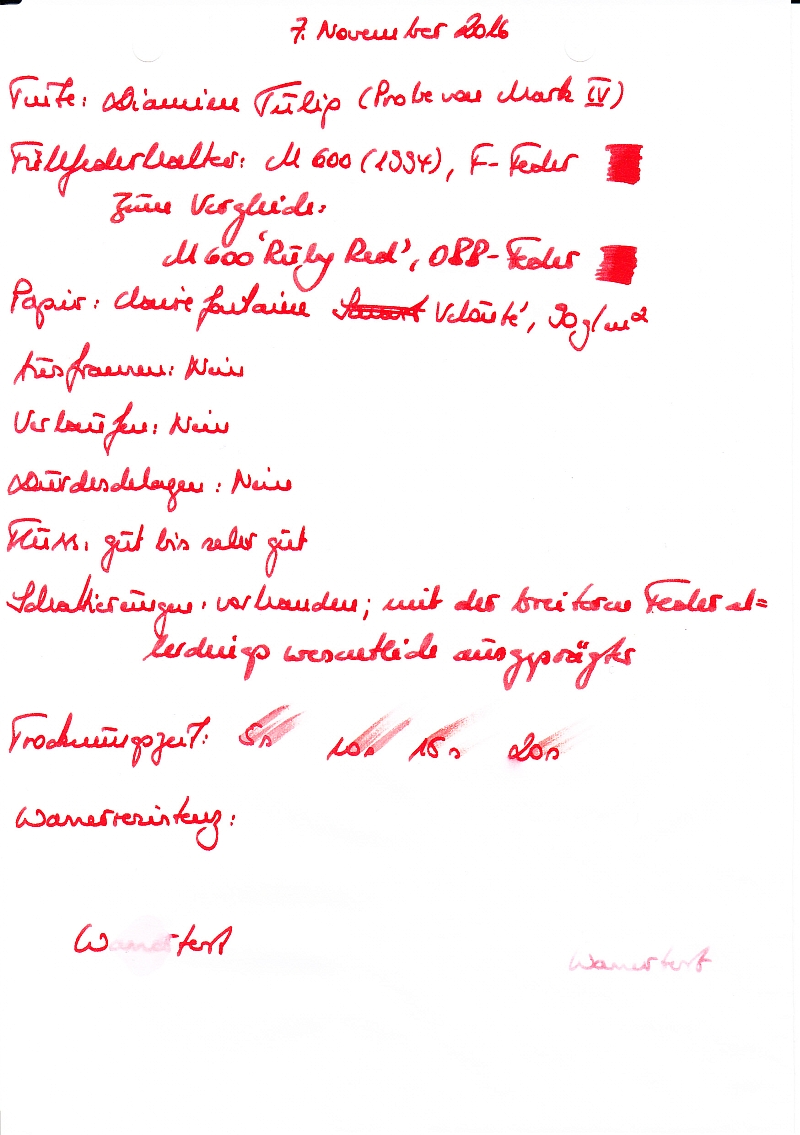 7. November 2016
Tinte: Diamine Tulip (Probe von Mark IV)
Füllfederhalter: M 600 (1994), F-Feder
Zum Vergleich:
M 600 'Ruby Red', OBB-Feder
Papier: Clairefontaine Smart Velouté, 90g/m²
Ausfransen: Nein
Verlaufen: Nein
Durchschlagen: Nein
Fluss: gut bis sehr gut
Schattierungen: vorhanden; mit der breiteren Feder al=
lerdings wesentlich ausgeprägter
Trocknungszeit: 5s 10s 15s 20s
Wasserresistenz:
Wassertest Wassertest